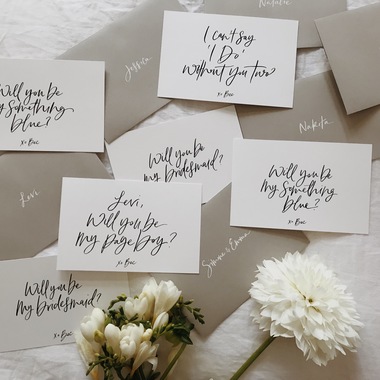 Natalie
I can't say
'I Do'
without you two
x● Bec
Jessica
Will you be
My Something
blue?
x● Bec
Nakita
Will you be
my bridesmaid?
Will you be
My Something
blue?
x● Bec
Levi
Levi,
Will you be
My Page boy?
x● Bec
Simone & Emma
Will you be
My bridesmaid?
x● Bec